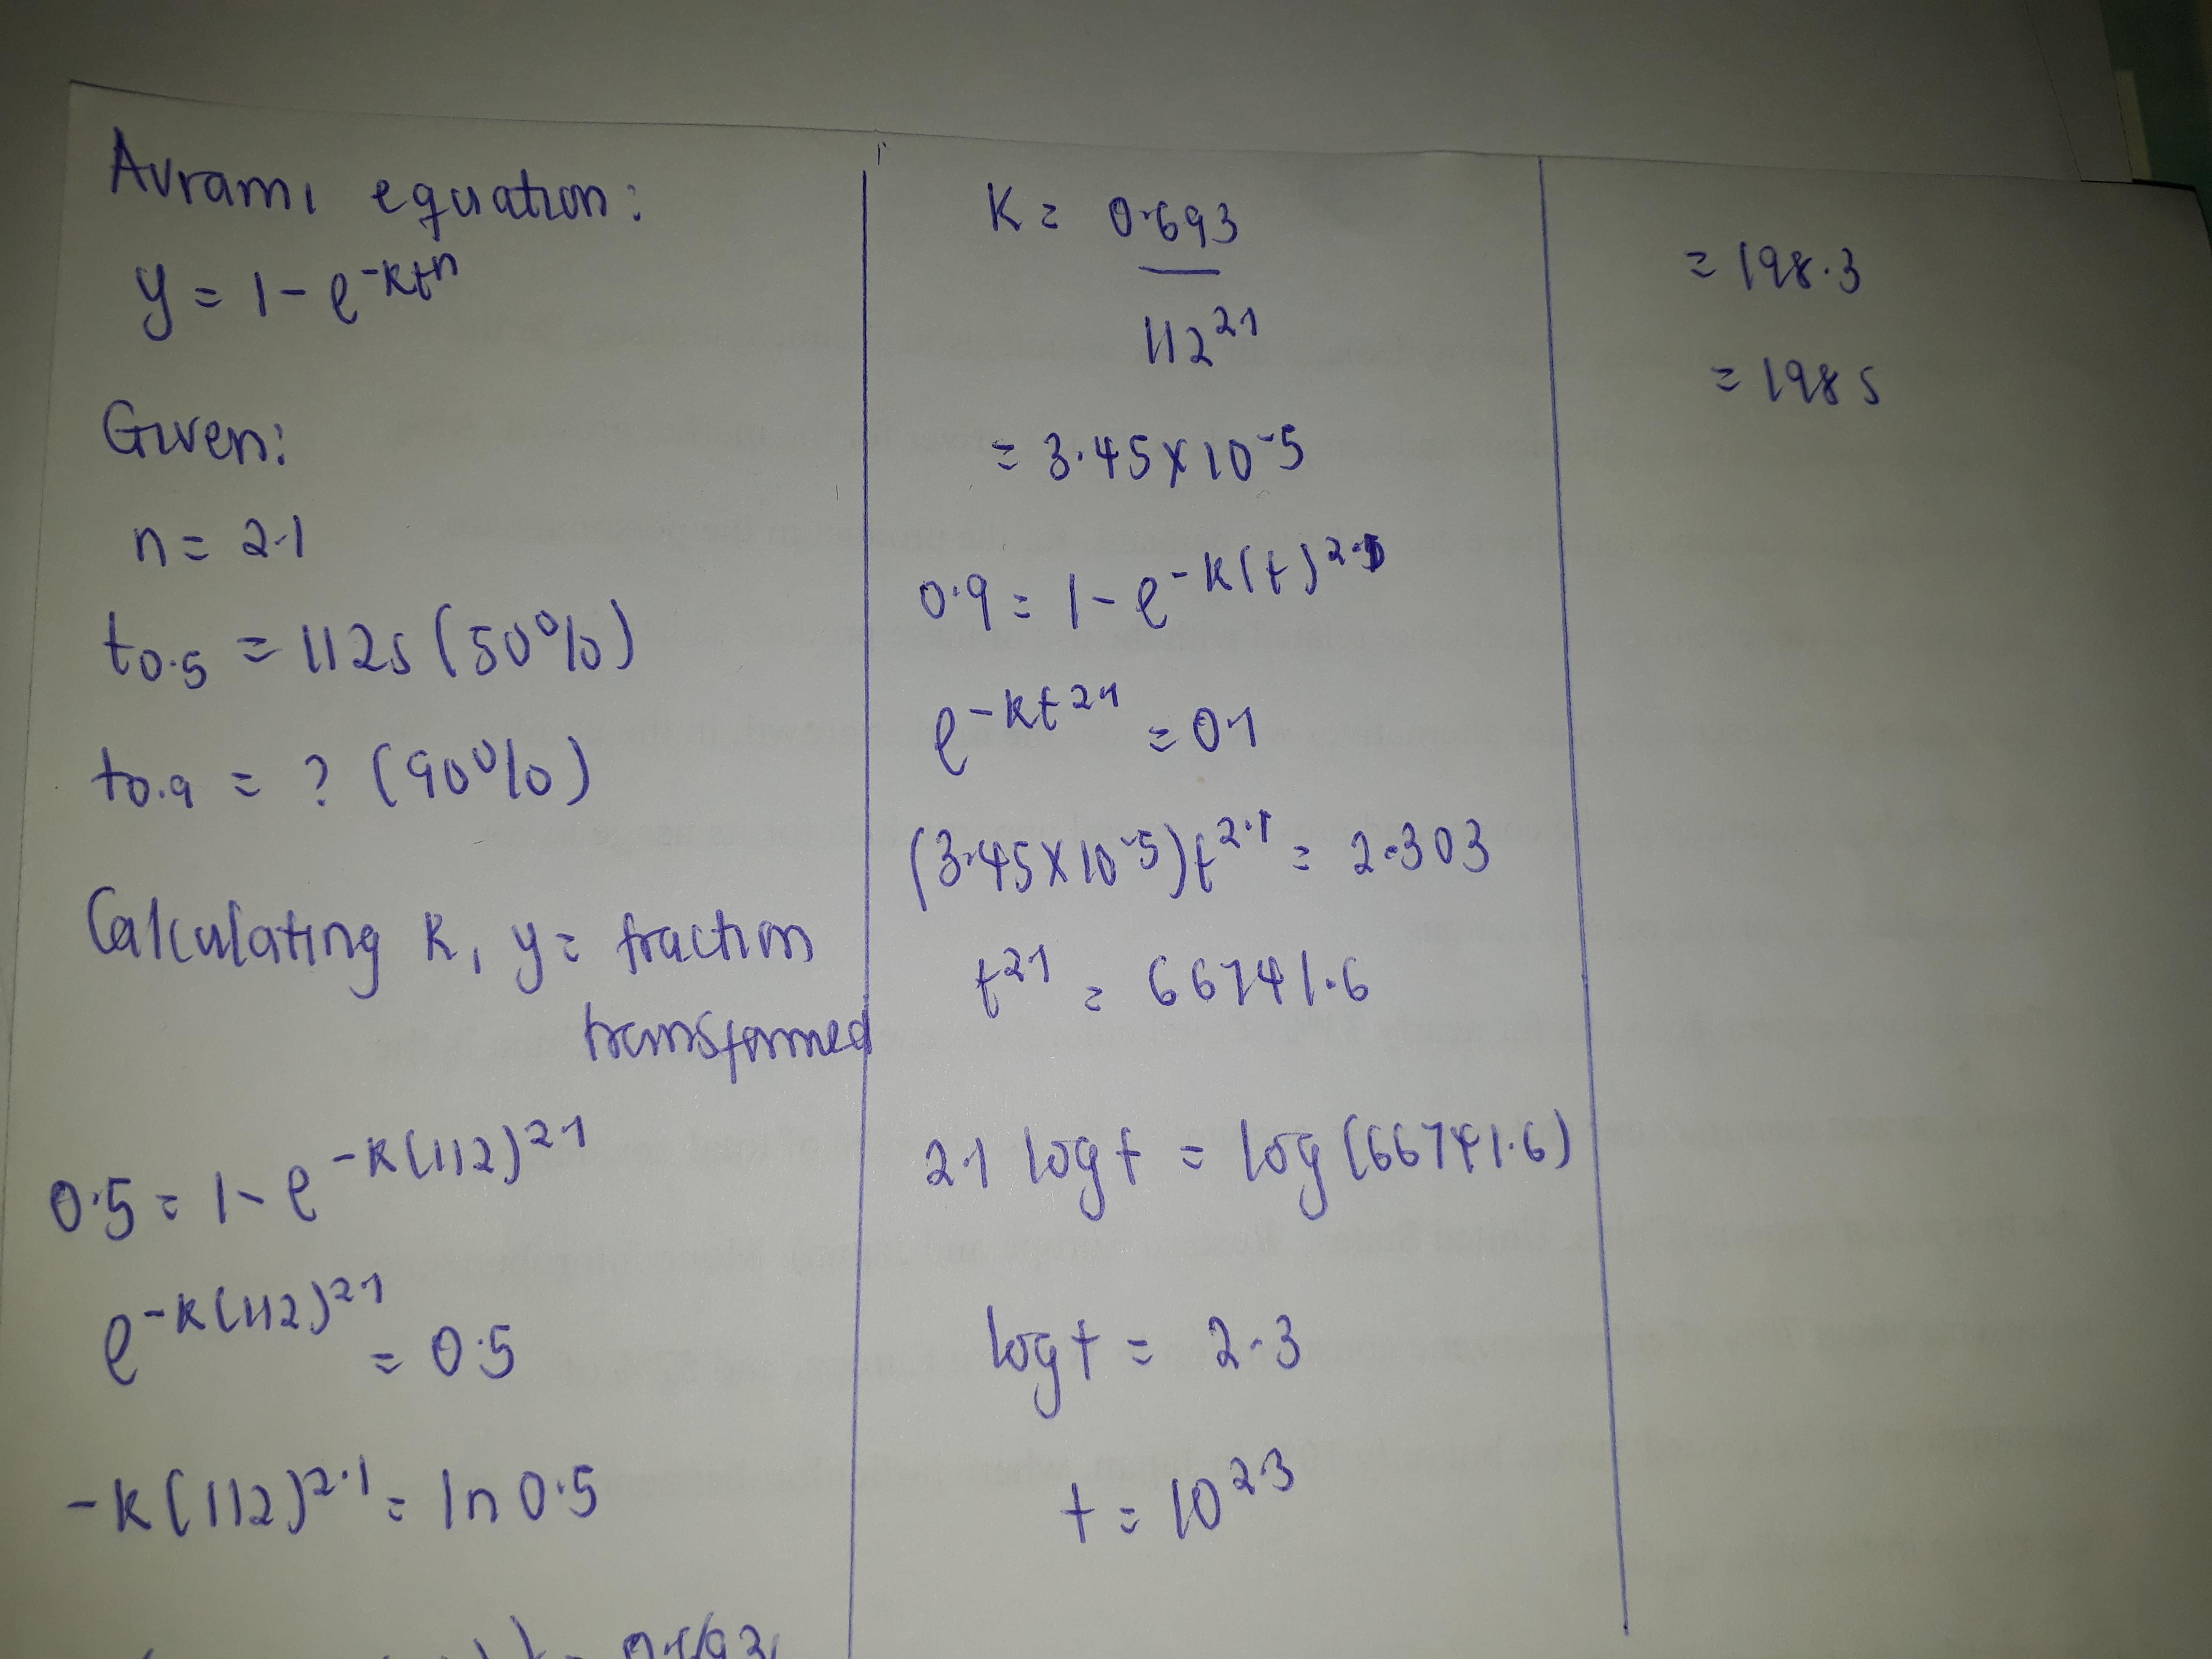 Avrami equation:
y = 1 - e^-kt^n
Given:
n = 2.1
t0.5 = 112s (50%)
t0.9 = ? (90%)
Calculating k, y = fraction
transformed
0.5 = 1 - e^-k(112)^2.1
e^-k(112)^2.1 = 0.5
-k(112)^2.1 = ln 0.5
K = 0.693
112^2.1
= 3.45 x 10^-5
0.9 = 1 - e^-k(t)^2.1
e^-kt^2.1 = 0.1
(3.45 x 10^-5)t^2.1 = 2.303
t^2.1 = 66741.6
2.1 log t = log (66741.6)
log t = 2.3
t = 10^2.3
= 198.3
= 198 s